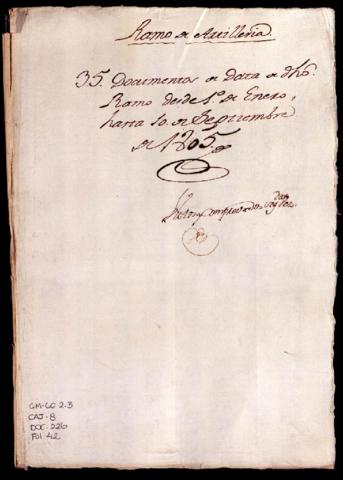 Ramo de Artilleria.
35. Documentos de Data de dho.
Ramo desde 1º. de Enero,
hasta 10. de Septiembre
de 1805.
GM-CO 2.3
CAJ-8
DOC-226
FOL-42